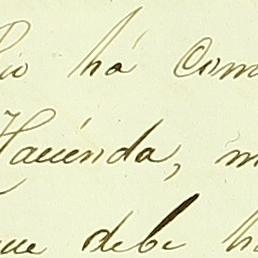 há com
Hacienda, m
que debe h